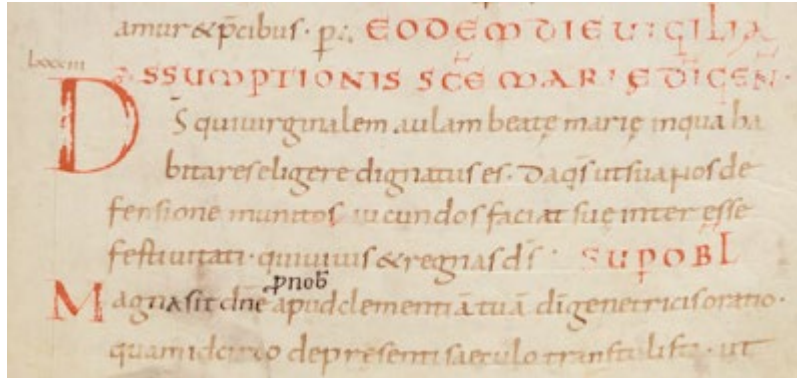 amur & p̄cibus · p̄:. EODEM DIE UIGILIA
lxxxiii ASSUMPTIONIS SCĒ MARIĘ DICEN̄·
D̄S qui uirginalem aulam beatę marię in qua ha
bitares eligere dignatus es · Da q̄s ut sua nos de
fensione munitos iucundos faciat suę interesse
festiuitati · qui uiuis & regnas d̄s · SUP OBL̄
p nob̄
Magna sit dn̄e apud clementiā tuā dī genetricis oratio ·
quam idcirco de presenti saeculo transtulisti · ut